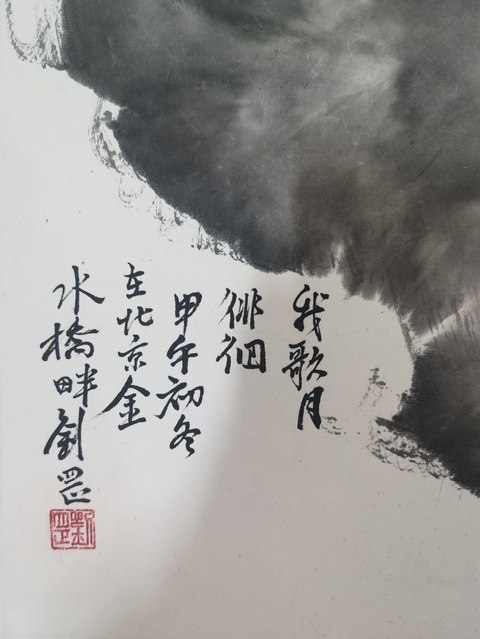 我歌月
徘徊
甲午初冬
在北京金
水橋畔劉罡